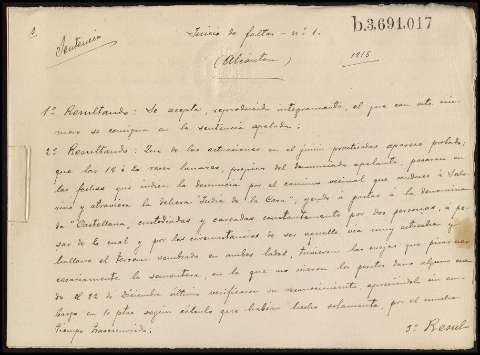 2.
b.3.691.017
Sentencia
Juicio de faltas - nº 1.
(Alicante)
1915
1º Resultando: Se acepta, reproducido integramente, el que con este nú-
mero se consigna en la sentencia apelada;
2º Resultando: Que de las actuaciones en el juicio practicadas aparece probado:
que las 19 ó 20 reses lanares, propias del denunciado apelante, pasaron en
las fechas que indica la denuncia por el camino vecinal que conduce á
y atraviesa la dehesa "Jedia de la Cara", yendo á pastar á la denomina-
da "Castellana", custodiadas y careadas constantemente por dos personas, á pe-
sar de lo cual y por las circunstancias de ser aquella vía muy estrecha y
hallarse el terreno sembrado en ambos lados, tuvieron las ovejas que pisar ne-
cesariamente la sementera, en la que no vieron los peritos daño alguno cuan-
do el 22 de Diciembre último verificaron su reconocimiento apreciándolo sin em-
bargo en 10 ptas según cálculo que habían hecho solamente, por el mucho
tiempo trascurrido;
3º Resul-